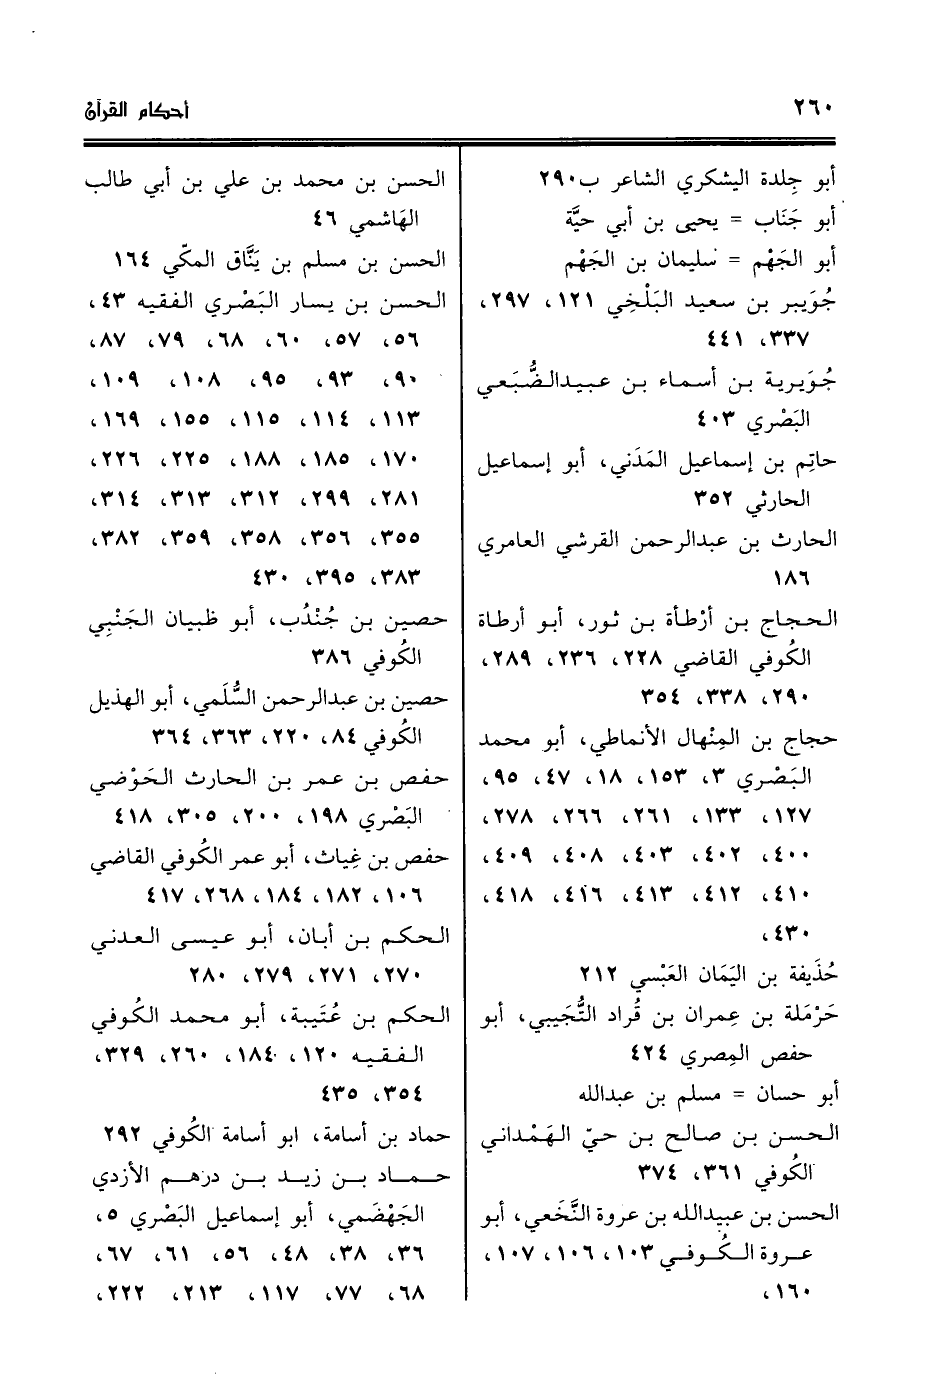 ٢٦٠
أحكام القرآن
أبو جِلدة اليشكري الشاعر ب٢٩٠
أبو جَنَاب = يحيى بن أبي حيَّة
أبو الجَهْم = سليمان بن الجَهْم
جُوَيبر بن سعيد البَلْخِي ١٢١، ٢٩٧،
٣٣٧، ٤٤١
جُوَيرية بن أسماء بن عبيدالضُّبَعي
البَصْري ٤٠٣
حاتِم بن إسماعيل المَدَني، أبو إسماعيل
الحارثي ٣٥٢
الحارث بن عبدالرحمن القرشي العامري
١٨٦
الحجاج بن أرْطأة بن ثور، أبو أرطاة
الكُوفي القاضي ٢٢٨، ٢٣٦، ٢٨٩،
٢٩٠، ٣٣٨، ٣٥٤
حجاج بن المِنْهال الأنماطي، أبو محمد
البَصْري ٣، ١٥٣، ١٨، ٤٧، ٩٥،
١٢٧، ١٣٣، ٢٦١، ٢٦٦، ٢٧٨،
٤٠٠، ٤٠٢، ٤٠٣، ٤٠٨، ٤٠٩،
٤١٠، ٤١٢، ٤١٣، ٤١٦، ٤١٨،
٤٣٠،
حُذَيفة بن اليَمَان العَبْسي ٢١٢
حَرْمَلة بن عِمران بن قُراد التُّجِيبي، أبو
حفص المِصري ٤٢٤
أبو حسان = مسلم بن عبدالله
الحسن بن صالح بن حيّ الهَمْداني
الكُوفي ٣٦١، ٣٧٤
الحسن بن عبيدالله بن عروة النَّخَعي، أبو
عروة الكُوفي ١٠٣، ١٠٦، ١٠٧،
١٦٠،
الحسن بن محمد بن علي بن أبي طالب
الهَاشمي ٤٦
الحسن بن مسلم بن يَنَّاق المكّي ١٦٤
الحسن بن يسار البَصْري الفقيه ٤٣،
٥٦، ٥٧، ٦٠، ٦٨، ٧٩، ٨٧،
٩٠، ٩٣، ٩٥، ١٠٨، ١٠٩،
١١٣، ١١٤، ١١٥، ١٥٥، ١٦٩،
١٧٠، ١٨٥، ١٨٨، ٢٢٥، ٢٢٦،
٢٨١، ٢٩٩، ٣١٢، ٣١٣، ٣١٤،
٣٥٥، ٣٥٦، ٣٥٨، ٣٥٩، ٣٨٢،
٣٨٣، ٣٩٥، ٤٣٠
حصين بن جُنْدُب، أبو ظبيان الجَنْبِي
الكُوفي ٣٨٦
حصين بن عبدالرحمن السُّلَمي، أبو الهذيل
الكُوفي ٨٤، ٢٢٠، ٣٦٣، ٣٦٤
حفص بن عمر بن الحارث الحَوْضي
البَصْري ١٩٨، ٢٠٠، ٣٠٥، ٤١٨
حفص بن غِياث، أبو عمر الكُوفي القاضي
١٠٦، ١٨٢، ١٨٤، ٢٦٨، ٤١٧
الحكم بن أبان، أبو عيسى العدني
٢٧٠، ٢٧١، ٢٧٩، ٢٨٠
الحكم بن عُتَيبة، أبو محمد الكُوفي
الفقيه ١٢٠، ١٨٤، ٢٦٠، ٣٢٩،
٣٥٤، ٤٣٥
حماد بن أسامة، ابو أسامة الكُوفي ٢٩٢
حماد بن زيد بن درهم الأزدي
الجَهْضَمي، أبو إسماعيل البَصْري ٥،
٣٦، ٣٨، ٤٨، ٥٦، ٦١، ٦٧،
٦٨، ٧٧، ١١٧، ٢١٣، ٢٢٢،